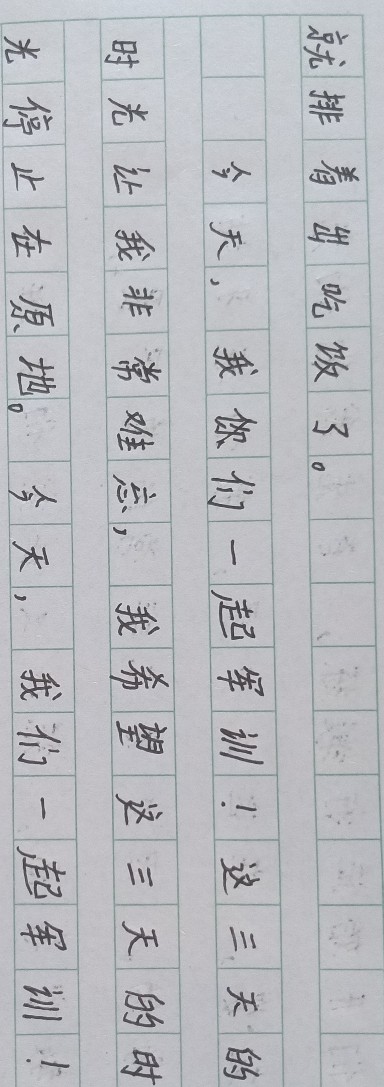 就排着出吃饭了。
今天，我你们一起军训！这三天的
时光让我非常难忘，我希望这三天的时
光停止在原地。今天，我们一起军训！